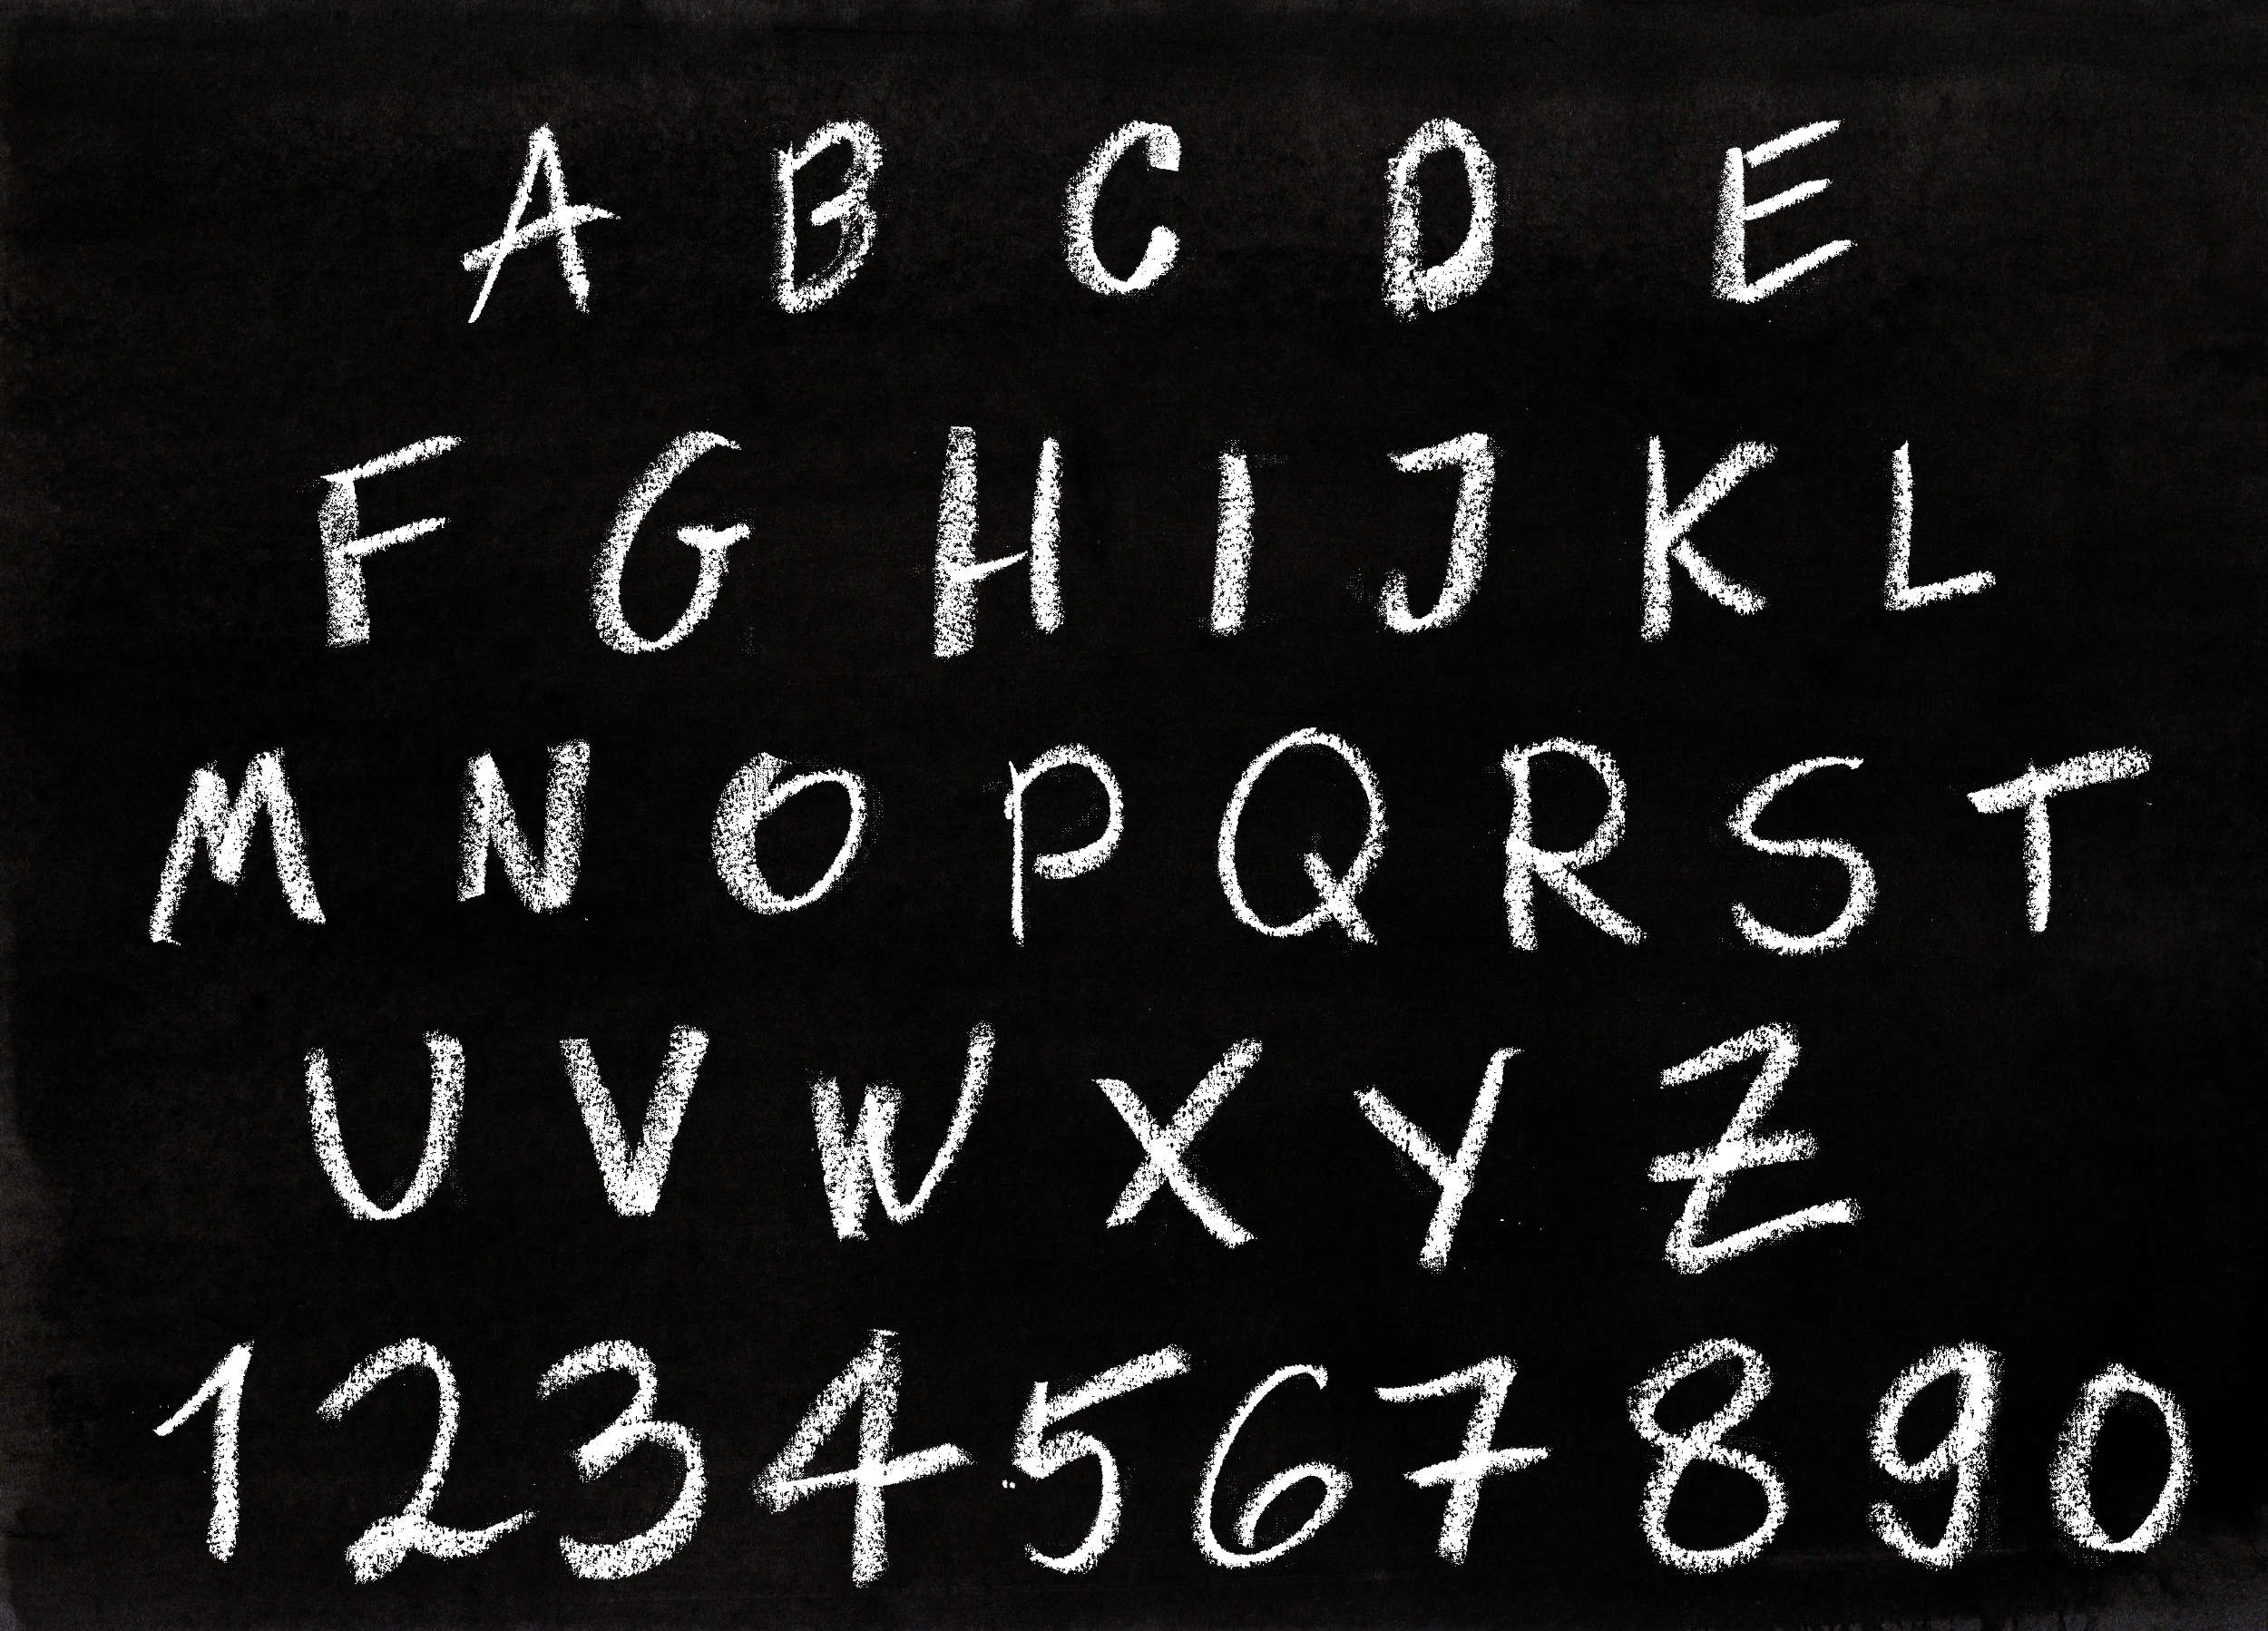 A B C D E
F G H I J K L
M N O P Q R S T
U V W X Y Z
1 2 3 4 5 6 7 8 9 0